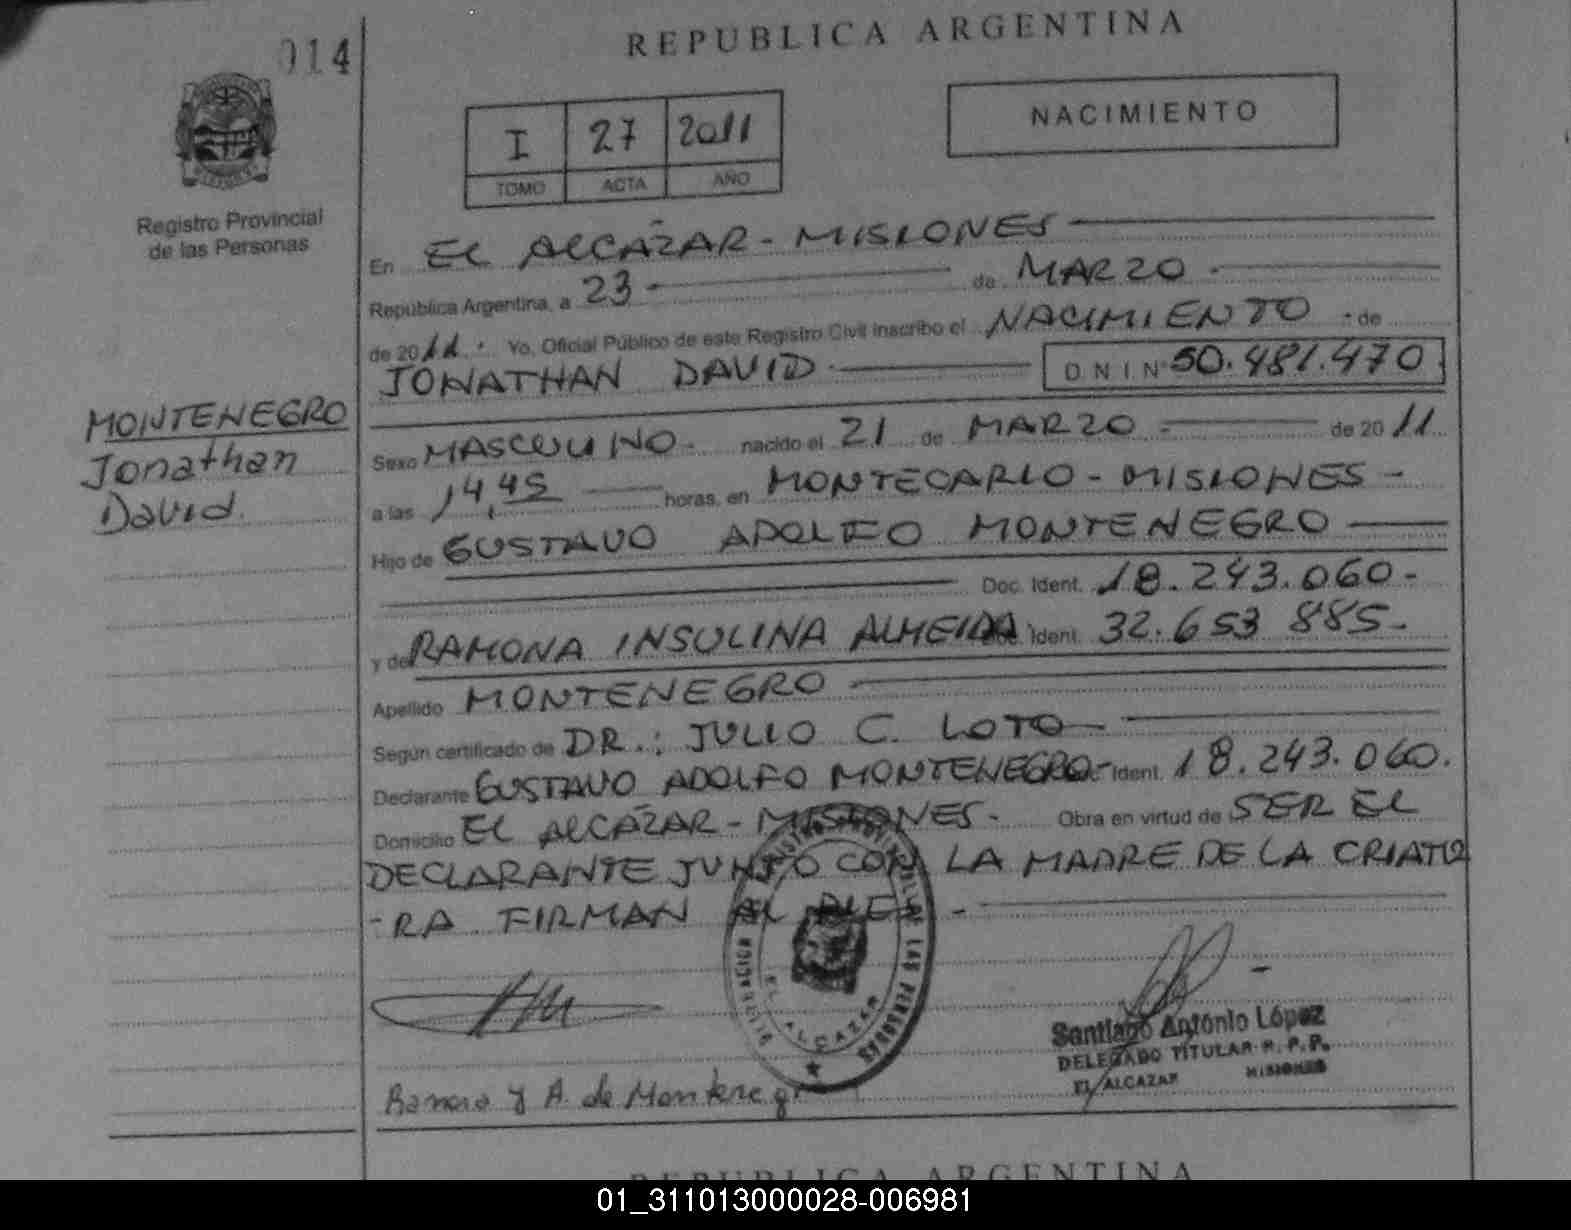 014
REPUBLICA ARGENTINA
I 27 2011
TOMO ACTA AÑO
NACIMIENTO
Registro Provincial
de las Personas
En EL ALCAZAR - MISIONES
República Argentina, a 23 - de MARZO -
de 2011. Yo, Oficial Público de este Registro Civil inscribo el NACIMIENTO - de
JONATHAN DAVID - D N I Nº 50.481.470
MONTENEGRO
Jonathan
David.
Sexo MASCULINO - nacido el 21 de MARZO - de 2011
a las 14,45 horas, en MONTECARLO - MISIONES -
Hijo de GUSTAVO ADOLFO MONTENEGRO
Doc. Ident. 18.243.060 -
y de RAMONA INSULINA ALMEIDA Doc. Ident. 32.653 885 -
Apellido MONTENEGRO
Según certificado de DR.: JULIO C. LOTO -
Declarante GUSTAVO ADOLFO MONTENEGRO - Ident. 18.243.060.
Domicilio EL ALCAZAR - MISIONES - Obra en virtud de SER EL
DECLARANTE JUNTO CON LA MADRE DE LA CRIATU
-RA FIRMAN AL PIE. -
EL ALCAZAR
Santiago Antonio López
DELEGADO TITULAR R. P. P.
EL ALCAZAR MISIONES
A. de Montenegr
REPUBLICA ARGENTINA
01_311013000028-006981